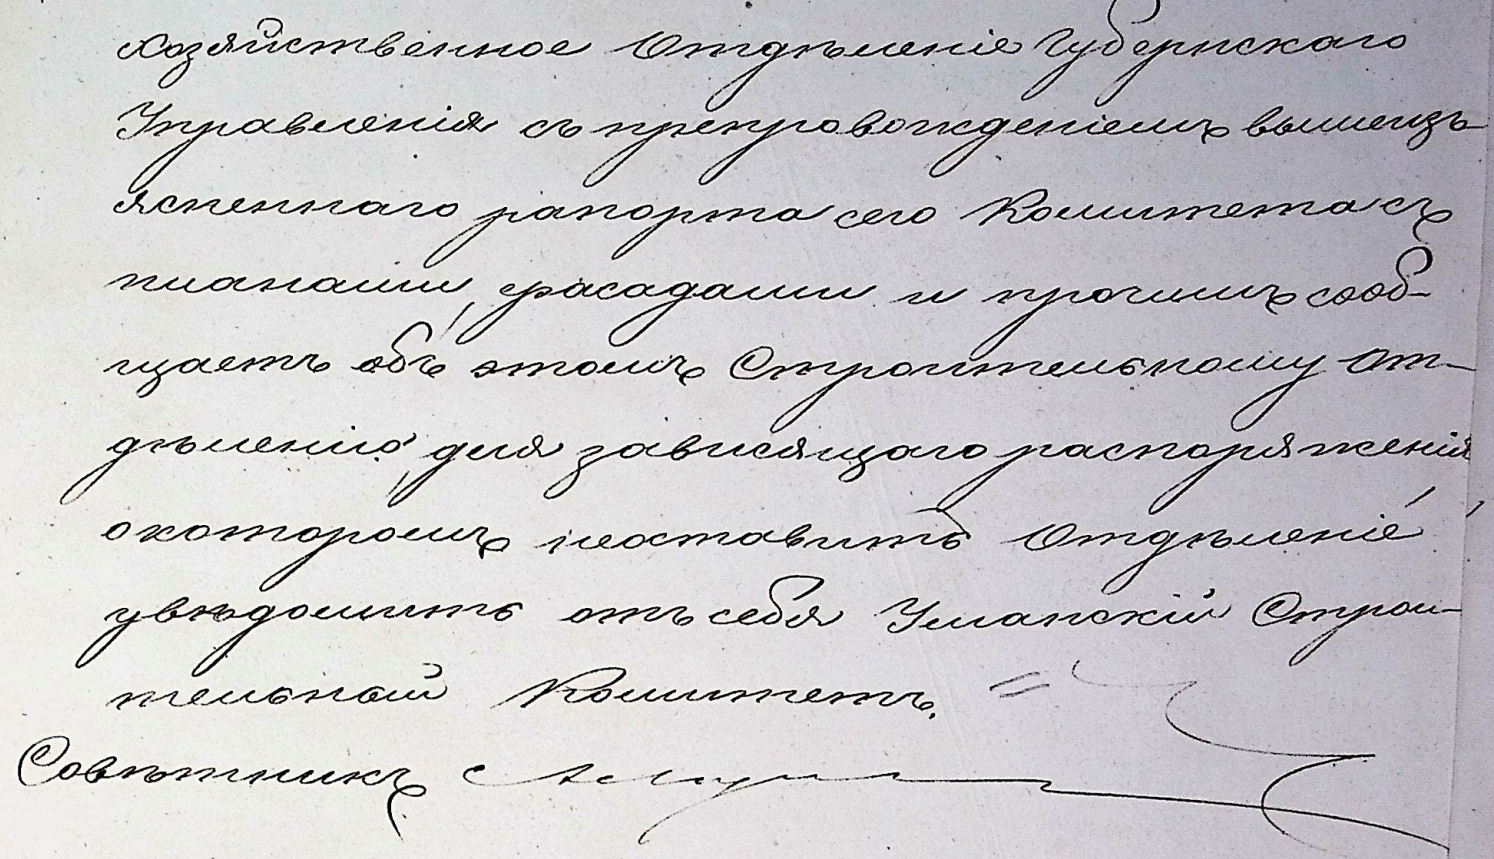 хозяйственное Отдѣленіе Губернскаго
Управленія съ препровожденіемъ вышеизъ-
ясненнаго рапорта сего Комитета съ
планами, фасадами и прочимъ сооб-
щаетъ объ этомъ Строительному От-
дѣленію, для зависящаго распоряженія,
о которомъ неоставитъ Отдѣленіе
увѣдомить отъ себя Уманскій Строи-
тельный Комитетъ.
Совѣтникъ